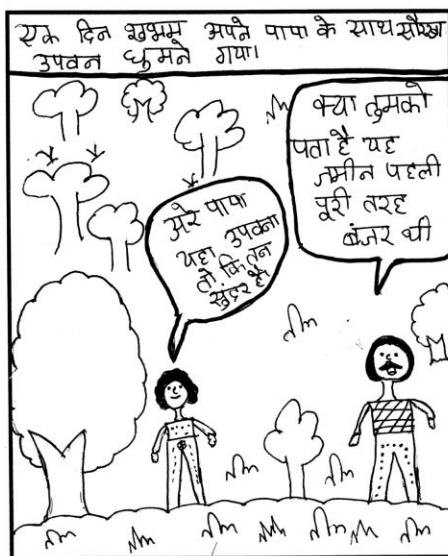 एक दिन शुभम अपने पापा के साथ सौरखा
उपवन घुमने गया।
अरे पापा
यहा उपवना
तो कितन
सुंदर है
क्या तुमको
पता है यह
जमीन पहली
पूरी तरह
बंजर थी